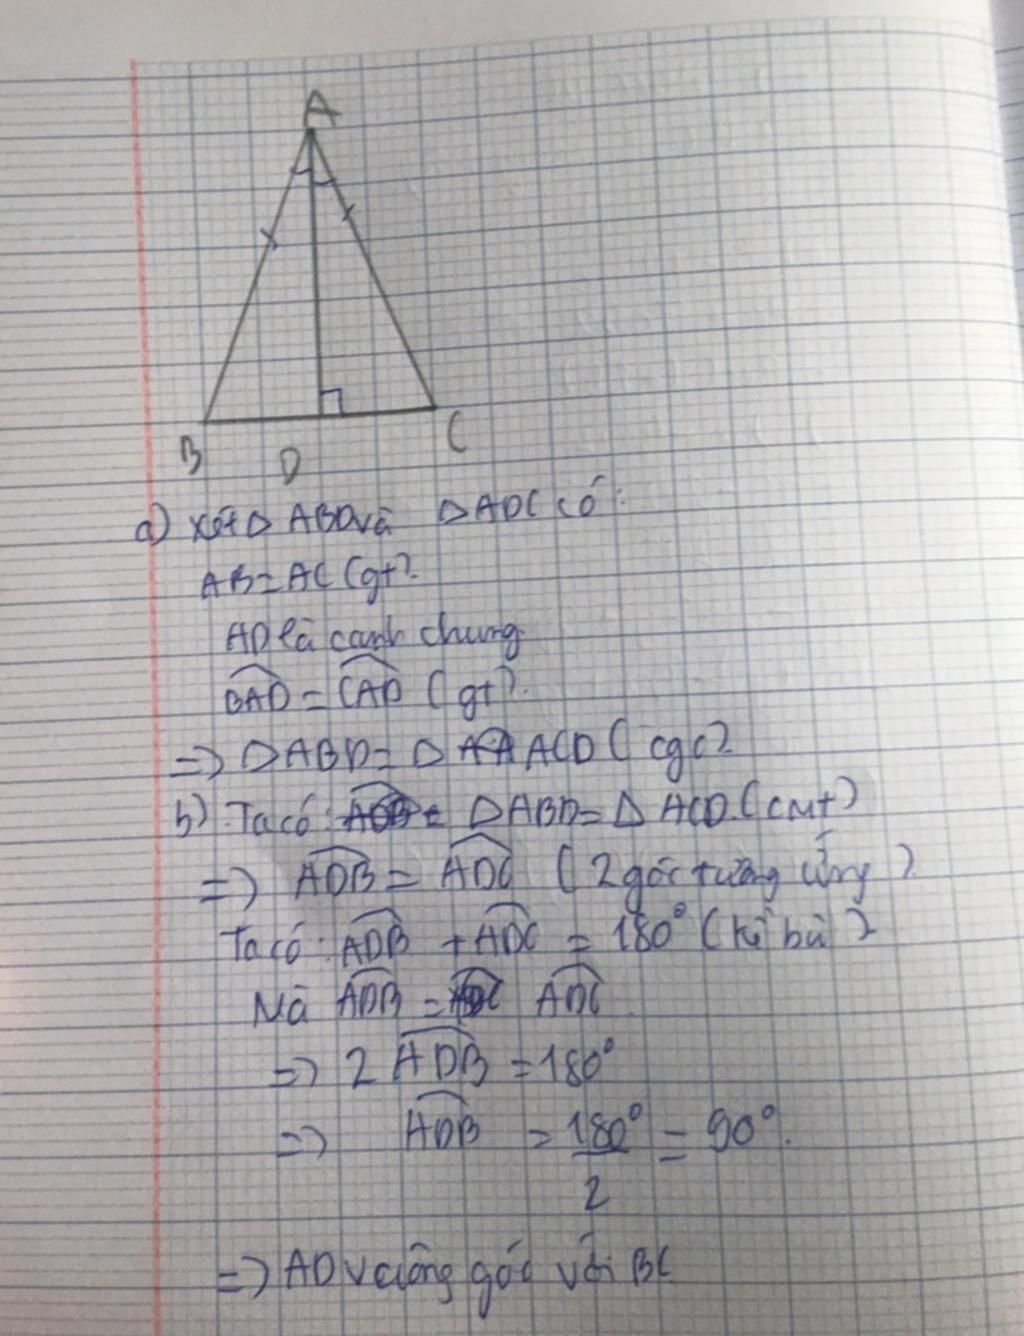 A
B
D
C
a) Xét Δ ABD và Δ ADC có:
AB = AC (gt).
AD là cạnh chung
BAD = CAD (gt).
=> Δ ABD = Δ ACD (cgc)
b) Ta có: Δ ABD = Δ ACD (cmt)
=> ADB = ADC (2 góc tương ứng)
Ta có: ADB + ADC = 180° (kề bù)
Mà ADB = ADC
=> 2 ADB = 180°
=> ADB = 180°/2 = 90°.
=> AD vuông góc với BC